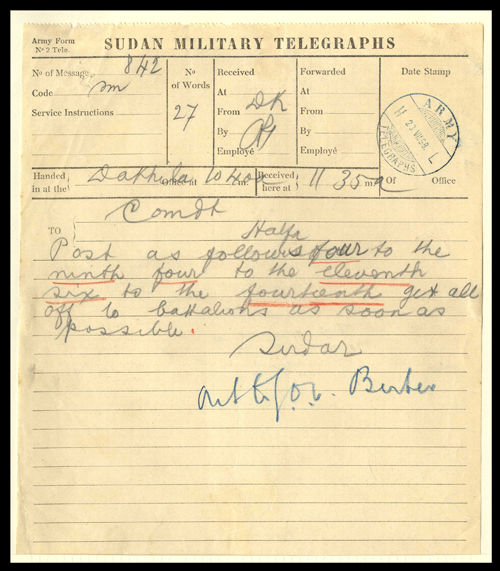 Army Form
Nº 2 Tele.
SUDAN MILITARY TELEGRAPHS
Nº of Message 842
Code sm
Service Instructions
Nº
of Words
27
Received
At
From DK
By
Employé
Forwarded
At
From
By
Employé
Date Stamp
ARMY
TELEGRAPHS
H L
Handed
in at the Dakhila Office at 10 40 a m.
Received
here at 11 35 a m
Of Office
Comdt
TO Halfa
Post as follows four to the
ninth four to the eleventh
six to the fourteenth get all
off to battalions as soon as
possible.
Sirdar
Berber